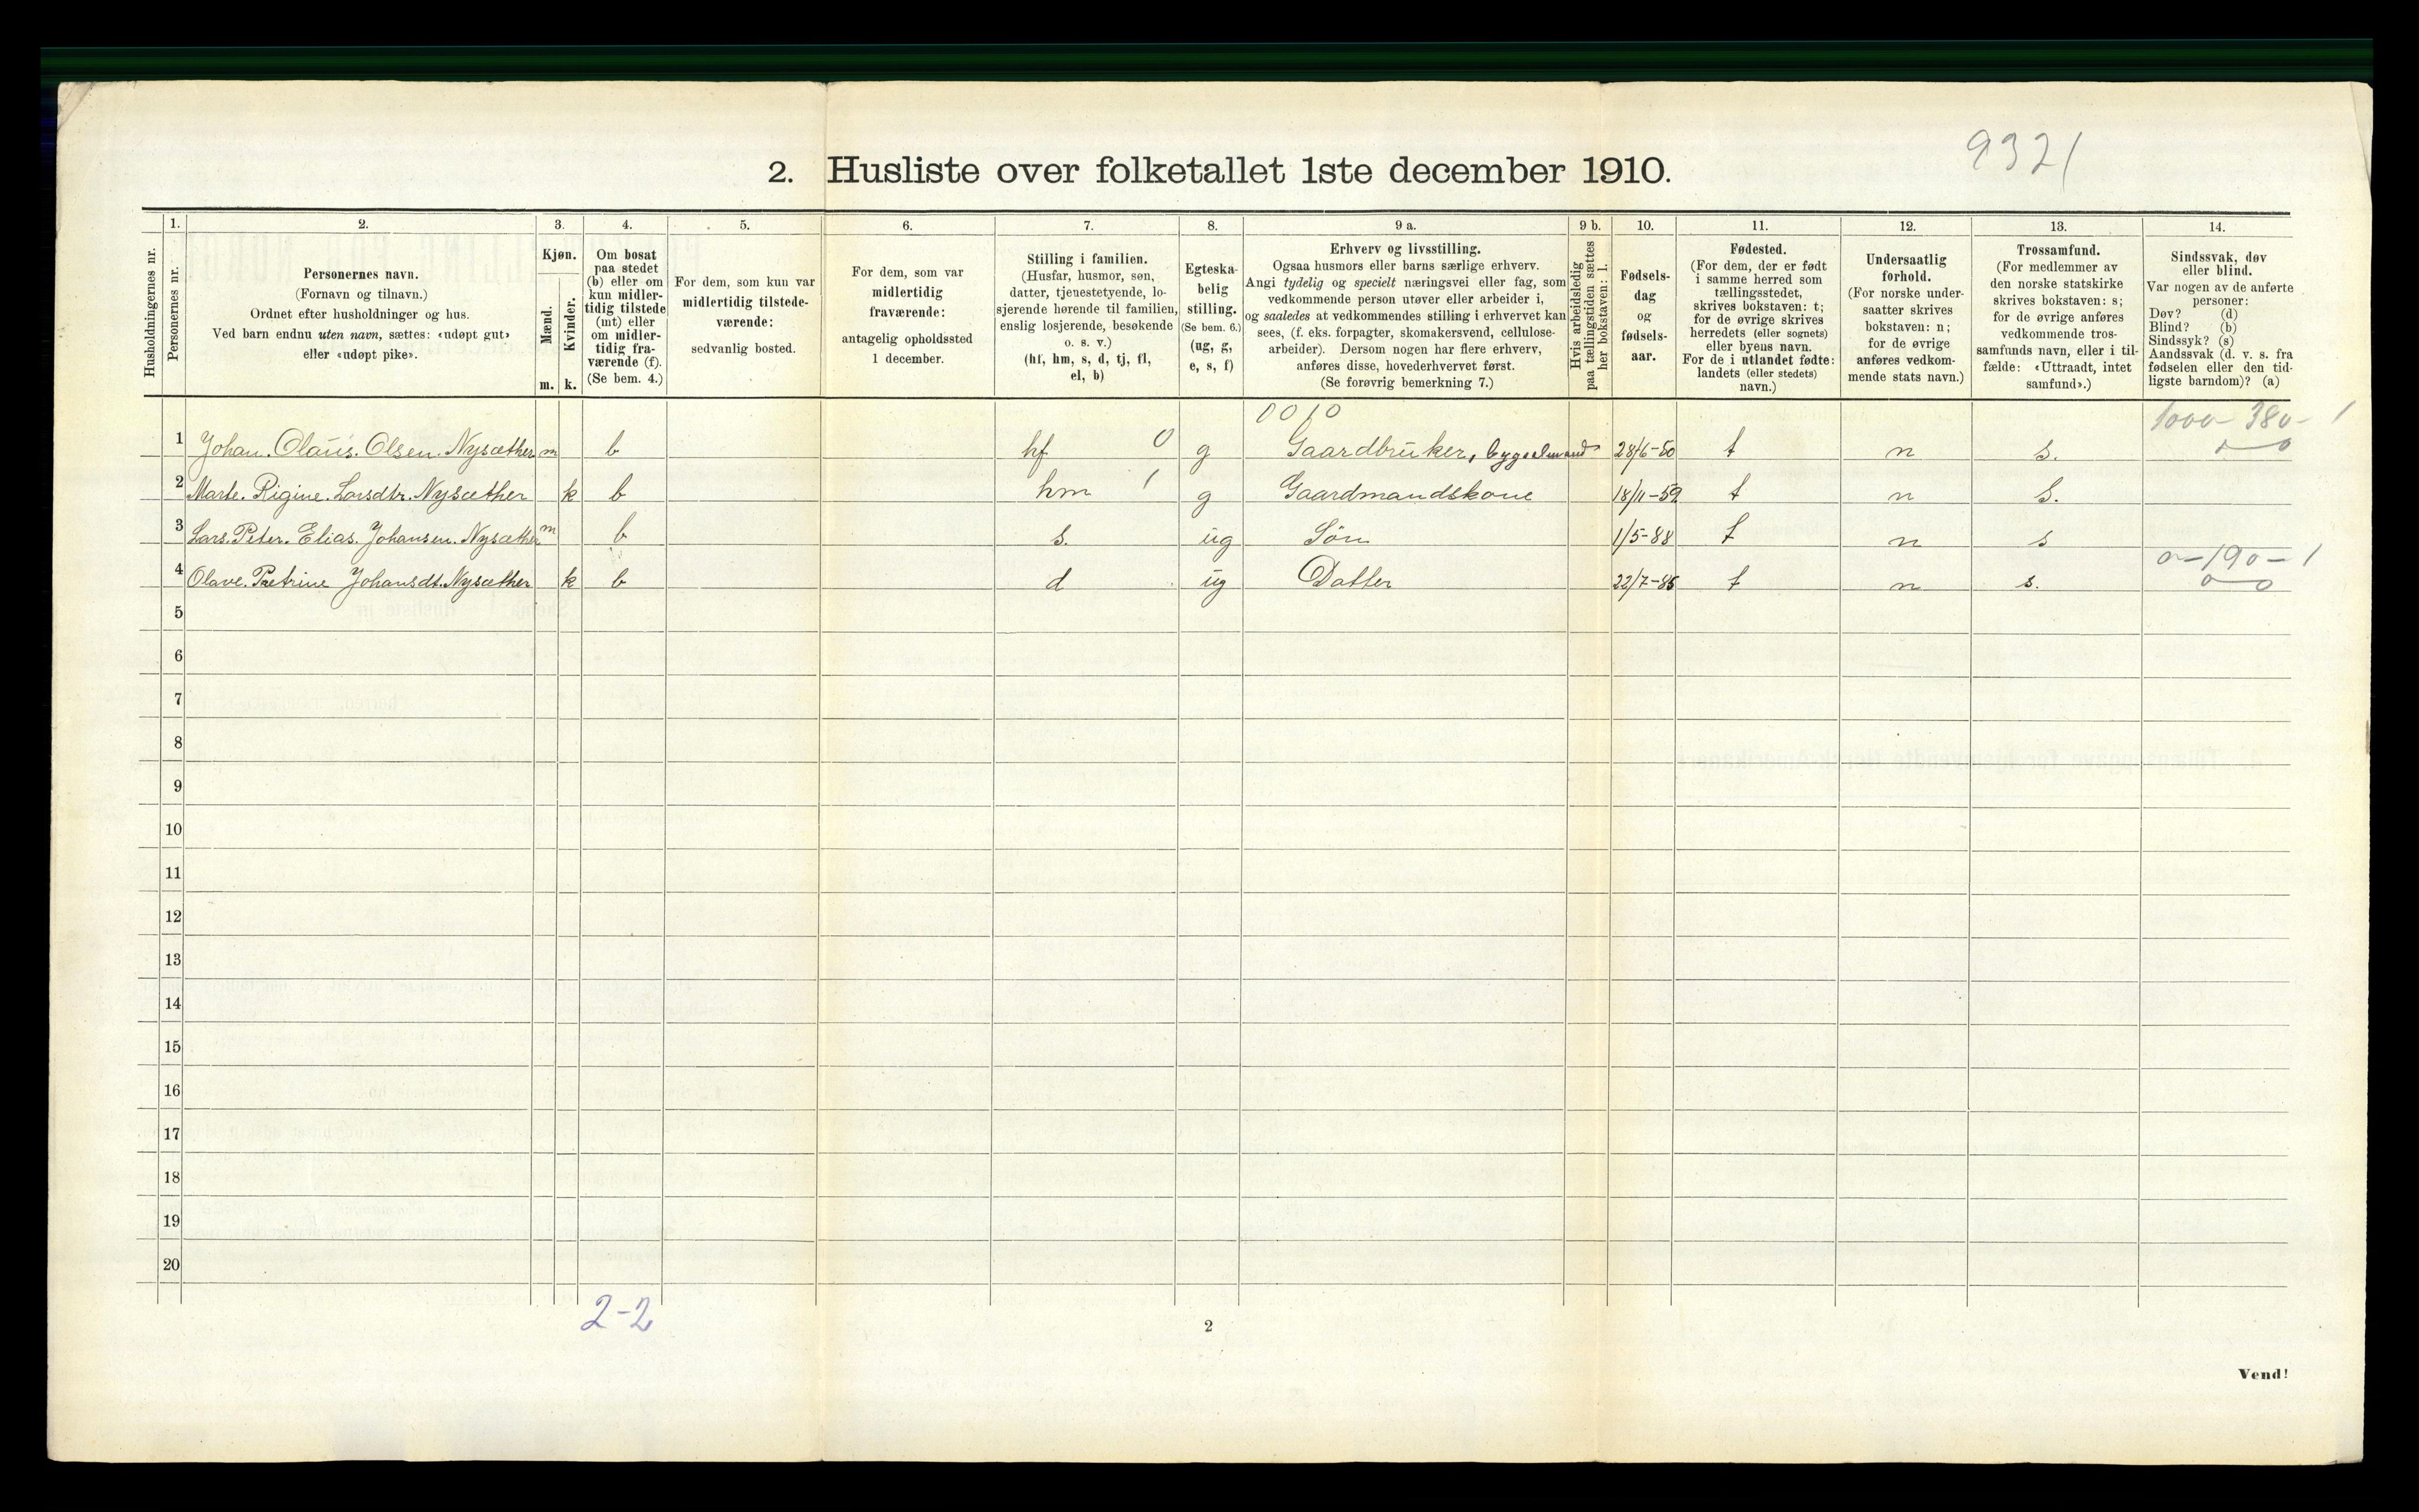 9321
2. Husliste over folketallet 1ste december 1910.
1. 2. 3. 4. 5. 6. 7. 8. 9 a. 9 b. 10. 11. 12. 13. 14.
Husholdningernes nr.
Personernes nr.
Personernes navn.
(Fornavn og tilnavn.)
Ordnet efter husholdninger og hus.
Ved barn endnu uten navn, sættes: «udøpt gut»
eller «udøpt pike».
Kjøn.
Mænd.
Kvinder.
m. k.
Om bosat
paa stedet
(b) eller om
kun midler-
tidig tilstede
(mt) eller
om midler-
tidig fra-
værende (f).
(Se bem. 4.)
For dem, som kun var
midlertidig tilstede-
værende:
sedvanlig bosted.
For dem, som var
midlertidig
fraværende:
antagelig opholdssted
1 december.
Stilling i familien.
(Husfar, husmor, søn,
datter, tjenestetyende, lo-
sjerende hørende til familien,
enslig losjerende, besøkende
o. s. v.)
(hf, hm, s, d, tj, fl,
el, b)
Egteska-
belig
stilling.
(Se bem. 6.)
(ug, g,
e, s, f)
Erhverv og livsstilling.
Ogsaa husmors eller barns særlige erhverv.
Angi tydelig og specielt næringsvei eller fag, som
vedkommende person utøver eller arbeider i,
og saaledes at vedkommendes stilling i erhvervet kan
sees, (f. eks. forpagter, skomakersvend, cellulose-
arbeider). Dersom nogen har flere erhverv,
anføres disse, hovederhvervet først.
(Se forøvrig bemerkning 7.)
Hvis arbeidsledig
paa tællingstiden sættes
her bokstaven: l.
Fødsels-
dag
og
fødsels-
aar.
Fødested.
(For dem, der er født
i samme herred som
tællingsstedet,
skrives bokstaven: t;
for de øvrige skrives
herredets (eller sognets)
eller byens navn.
For de i utlandet fødte:
landets (eller stedets)
navn.)
Undersaatlig
forhold.
(For norske under-
saatter skrives
bokstaven: n;
for de øvrige
anføres vedkom-
mende stats navn.)
Trossamfund.
(For medlemmer av
den norske statskirke
skrives bokstaven: s;
for de øvrige anføres
vedkommende tros-
samfunds navn, eller i til-
fælde: «Uttraadt, intet
samfund».)
Sindssvak, døv
eller blind.
Var nogen av de anførte
personer:
Døv? (d)
Blind? (b)
Sindssyk? (s)
Aandssvak (d. v. s. fra
fødselen eller den tid-
ligste barndom)? (a)
0010 1000-380-1
1 Johan. Olaus. Olsen. Nysæther m b hf 0 g Gaardbruker, bygselmand 28/6-50 t n s.
2 Marte. Rigine. Larsdtr. Nysæther k b hm 1 g Gaardmandskone 18/11-52 t n s.
3 Lars. Peter. Elias. Johansen. Nysæther m b s. ug Søn 1/5-88 t n s
0-190-1
4 Olave. Petrine Johansdt. Nysæther k b d ug Datter 22/7-85 t n s.
5
6
7
8
9
10
11
12
13
14
15
16
17
18
19
20
2-2
2
Vend!